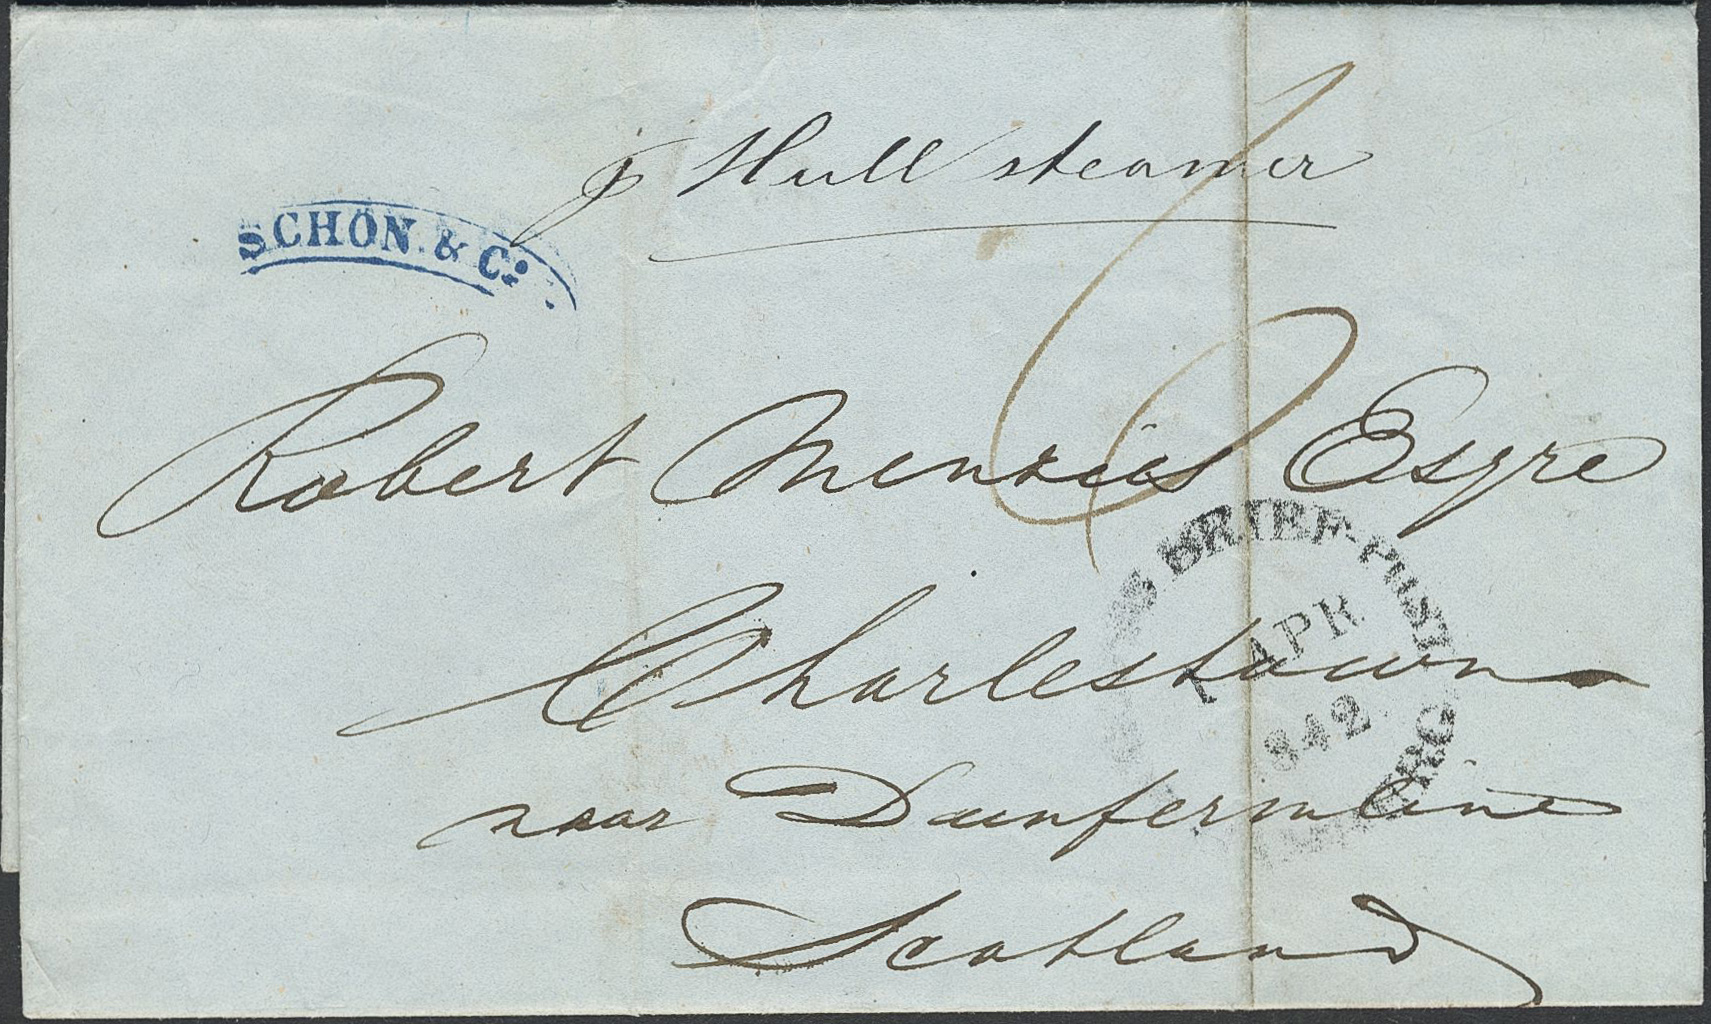 p Hull steamer
SCHÖN & Co.
6
Robert Menzies Esqre
Charlestown
near Dunfermline
Scotland
BRIEF-POST
1 APR
842